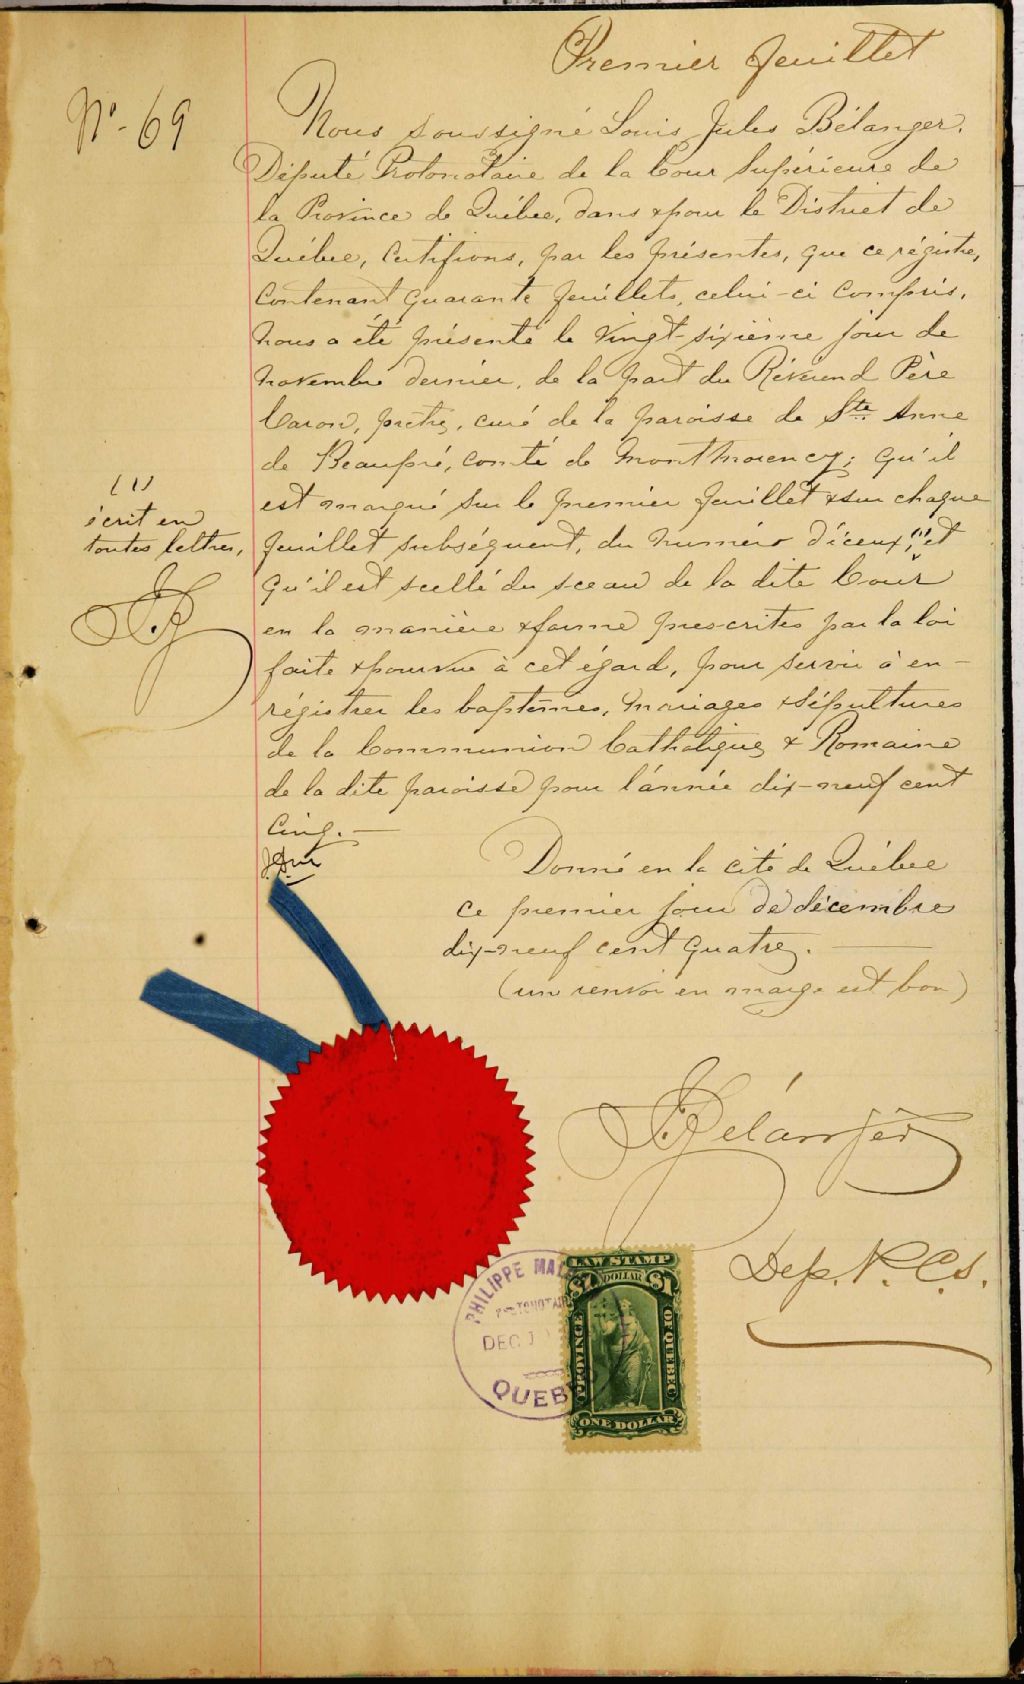 Premier feuillet
No. 69
Nous soussigné Louis Jules Bélanger,
Député Protonotaire de la Cour Supérieure de
la Province de Québec, dans & pour le District de
Québec, Certifions, par les présentes, que ce régistre,
Contenant quarante feuillets, celui-ci compris,
nous a été présenté le vingt-sixième jour de
novembre dernier, de la part du Révérend Père
Caron, prêtre, curé de la paroisse de Ste Anne
de Beaupré, comté de Montmorency; qu'il
est marqué sur le premier feuillet & sur chaque
feuillet subséquent, du numéro d'iceux, (1) et
qu'il est scellé du sceau de la dite Cour
en la manière & forme prescrites par la loi
faite & pourvue à cet égard, pour servir à en-
régistrer les baptêmes, mariages & sépultures
de la Communion Catholique & Romaine
de la dite paroisse pour l'année dix-neuf cent
cinq. —
(1)
écrit en
toutes lettres,
Donné en la cité de Québec
ce premier jour de décembre
dix-neuf cent quatre. —
(un renvoi en marge est bon)
Bélanger
Dep. P. C. S.
PHILIPPE
PROTONOTAIRE
DEC
QUEBEC
LAW STAMP
$1 DOLLAR $1
PROVINCE OF QUEBEC
ONE DOLLAR